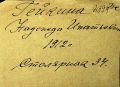 Гейкина
Надежда Игнатьевна
1912 г.
Столярная 34.